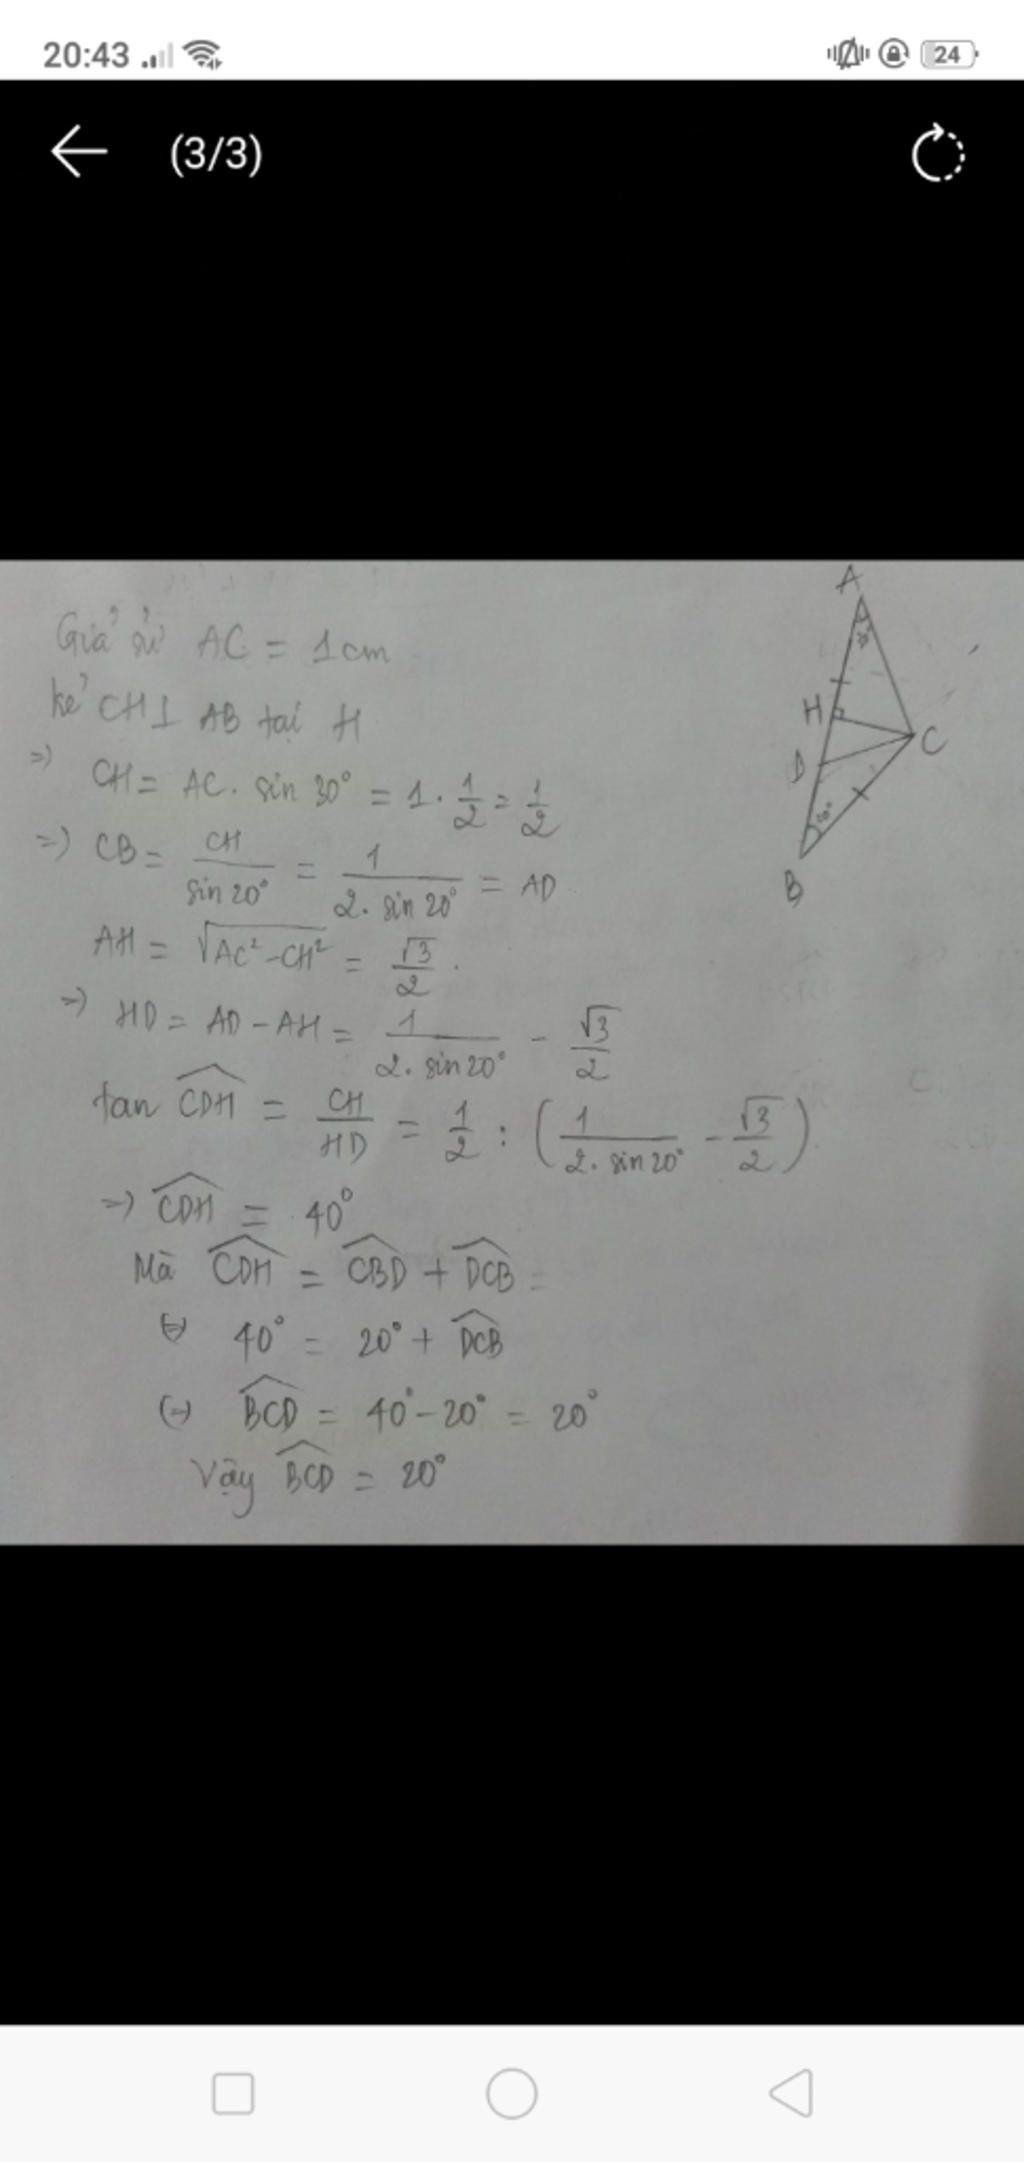 20:43
24
(3/3)
Giả sử AC = 1cm
kẻ CH⊥ AB tại H
=) CH = AC. sin 30° = 1. 1/2 = 1/2
=) CB = CH/sin 20° = 1/2. sin 20° = AD
AH = √AC²-CH² = √3/2.
=) HD = AD - AH = 1/2. sin 20° - √3/2
tan CDH = CH/HD = 1/2 : (1/2. sin 20° - √3/2)
=) CDH = 40°
Mà CDH = CBD + DCB =
(=) 40° = 20° + DCB
(=) BCD = 40° - 20° = 20°
Vậy BCD = 20°
A
30°
H
D
C
20°
B